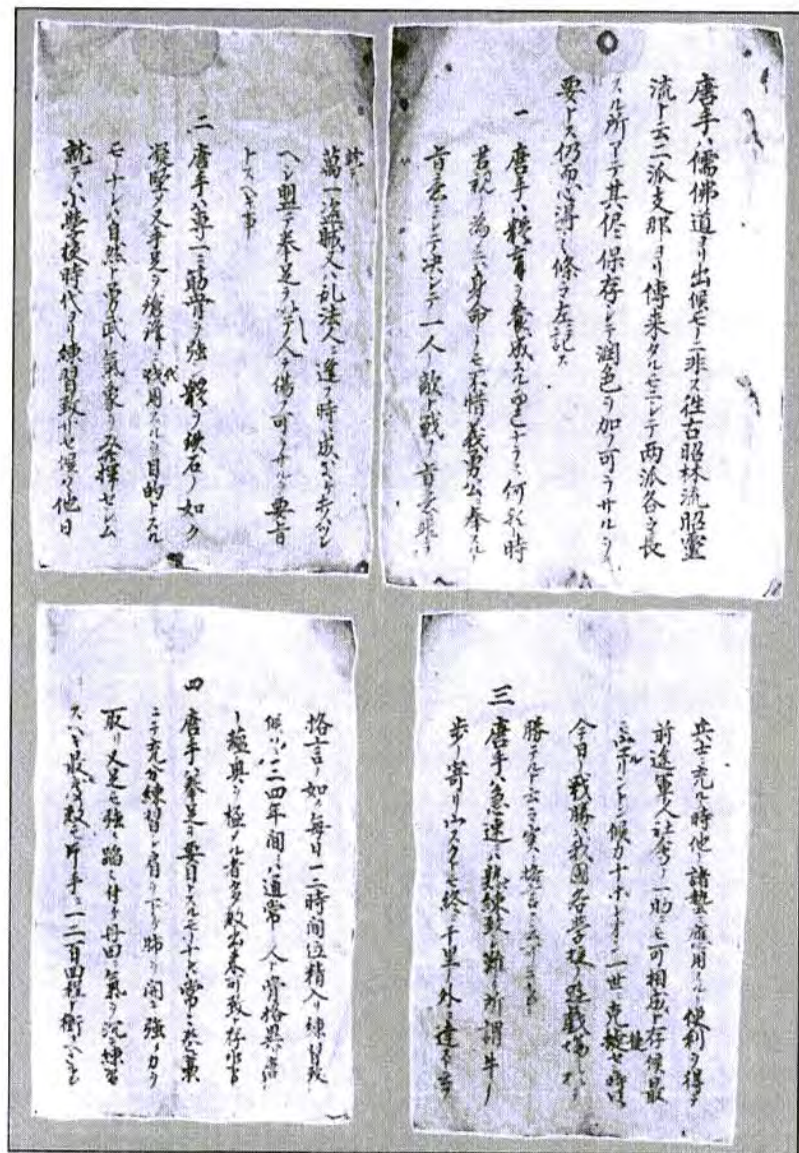 唐手ハ儒佛道ヨリ出候モノニ非ス往古昭林流昭靈
流ト云二派支那ヨリ傳来タルモノニシテ両派各々長
スル所アリテ其侭保存シテ潤色ヲ加フ可ラサルヲ
要トス仍而心得之條々左ニ記ス
一 唐手ハ躰育ヲ養成スル而已ナラス何レノ時
君親ノ為メニハ身命ヲモ不惜義勇公ニ奉スルノ
旨意ニシテ決シテ一人ノ敵ト戦フ旨意ニ非ス
就テハ
萬一盗賊又ハ乱法人ニ逢フ時ハ成ルタケ打ハツス
ヘシ盟テ拳足ヲ以テ人ヲ傷フ可ラサルヲ要旨
トスヘキ事
二 唐手ハ専一ニ筋骨ヲ強シ躰ヲ鉄石ノ如ク
凝堅メ又手足ヲ鎗鋒ニ代用スルヲ目的トスル
モノナレハ自然ト勇武ノ氣象ヲ發揮セシム
就テハ小學校時代ヨリ練習致サセ候ハヽ他日
兵士ニ充ルノ時他ノ諸藝ニ應用スルノ便利ヲ得テ
前途軍人社會ノ一助ニモ可相成ト存候最
モウエルリントン候カナポレオン一世ニ克捷セシ時曰ク
今日ノ戦勝ハ我國各学校ノ遊戯場ニ於テ
勝テルト云々実ニ格言トモ云フ可キ乎
三 唐手ハ急速ニハ熟練致シ難ク所謂牛ノ
歩ノ寄リウスクトモ終ニ千里ノ外ニ達スト云フ
格言ノ如ク毎日一二時間位精入リ練習致シ
候ハヽ三四年間ニハ通常ノ人ト骨格異リ唐手
ノ蘊奥ヲ極メル者多数出来可致ト存候事
四 唐手ハ拳足ヲ要目トスルモノナレハ常ニ巻藁
ニテ充分練習シ肩ヲ下ケ肺ヲ開キ強ク力ヲ
取リ又足モ強ク踏ミ付ケ丹田ニ氣ヲ沈メテ練習
スヘキ最モ度数モ片手ニ一二百回程モ衝クヘキ事